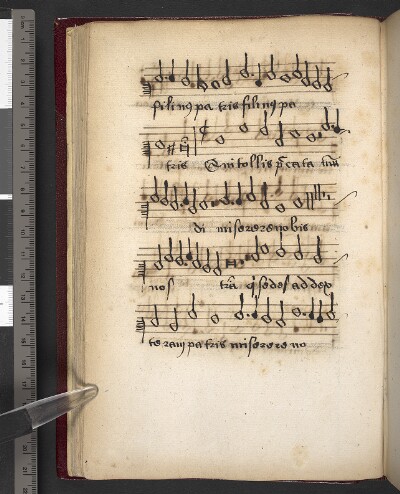 filius pa tris filius pa
tris Qui tollis peccata mū
di miserere nobis
nos trā q sedes ad dex
teram patris miserere no